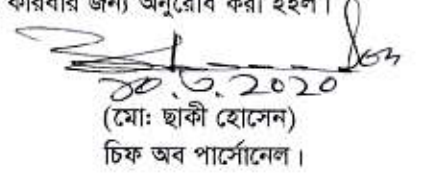 করিবার জন্য অনুরোধ করা হইল।
৩০.৬.2020
(মোঃ ছাকী হোসেন)
চিফ অব পার্সোনেল।